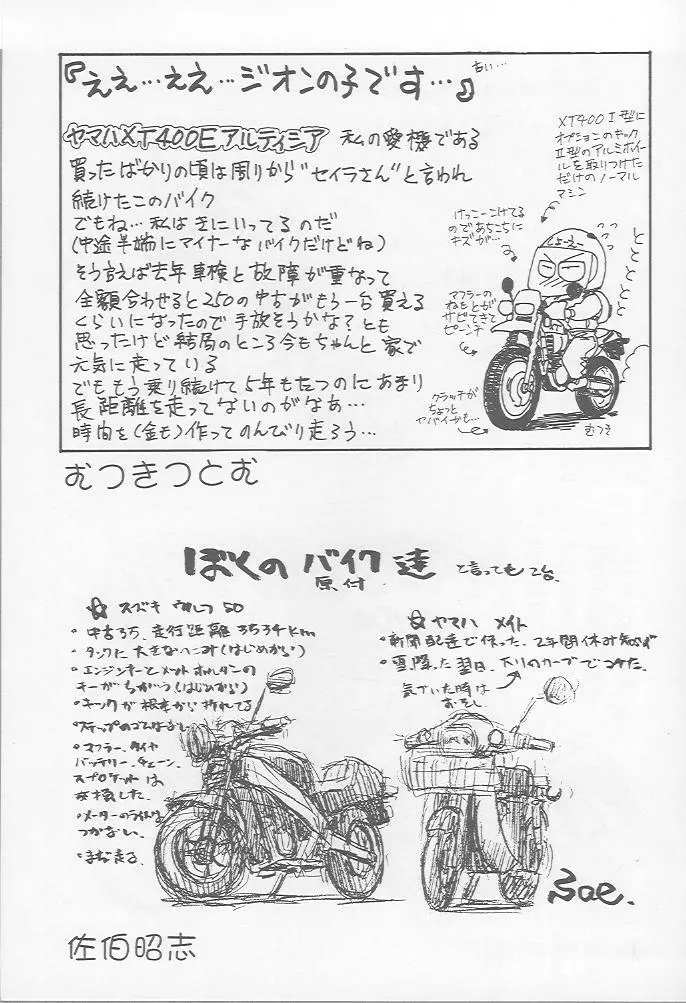 『ええ…ええ…ジオンの子です…』
古い…
ヤマハXT400E アルティシア 私の愛機である
買ったばかりの頃は周りから"セイラさん"と言われ
続けたこのバイク
でもね…私はきにいってるのだ
(中途半端にマイナーなバイクだけどね)
そう言えば去年車検と故障が重なって
全額合わせると250の中古がもう一台買える
くらいになったので手放そうかな?とも
思ったけど結局のところ今もちゃんと家で
元気に走っている
でももう乗り続けて5年もたつのにあまり
長距離を走ってないのがなあ…
時間を(金も)作ってのんびり走ろう…
XT400I型に
オプションのキック
II型のアルミホイー
ルを取りつけた
だけのノーマル
マシン
けっこーコけてる
のであちこちに
キズが…
マフラーの
ねもとが
サビてきて
ピーンチ
クラッチが
ちょっと
ヤバイかも…
トトトトトト
むつき
むつきつとむ
ぼくのバイク達 と言っても2台.
原付
☆スズキ ウルフ50
・中古35. 走行距離3534km
・タンクに大きなへこみ(はじめから)
・エンジンキーとメットホルダーの
キーがちがう(はじめから)
・キックが根元から折れてる
・ステップのゴムはない
・マフラー. タイヤ
バッテリー. チェーン.
スプロケットは
交換した.
・メーターのライトは
つかない.
・まだ走る.
☆ヤマハ メイト
・新聞配達で使った. 2年間休み知らず
・雪降った翌日、下りのカーブでコケた.
気づいた時は
おそし.
Sae.
佐伯昭志